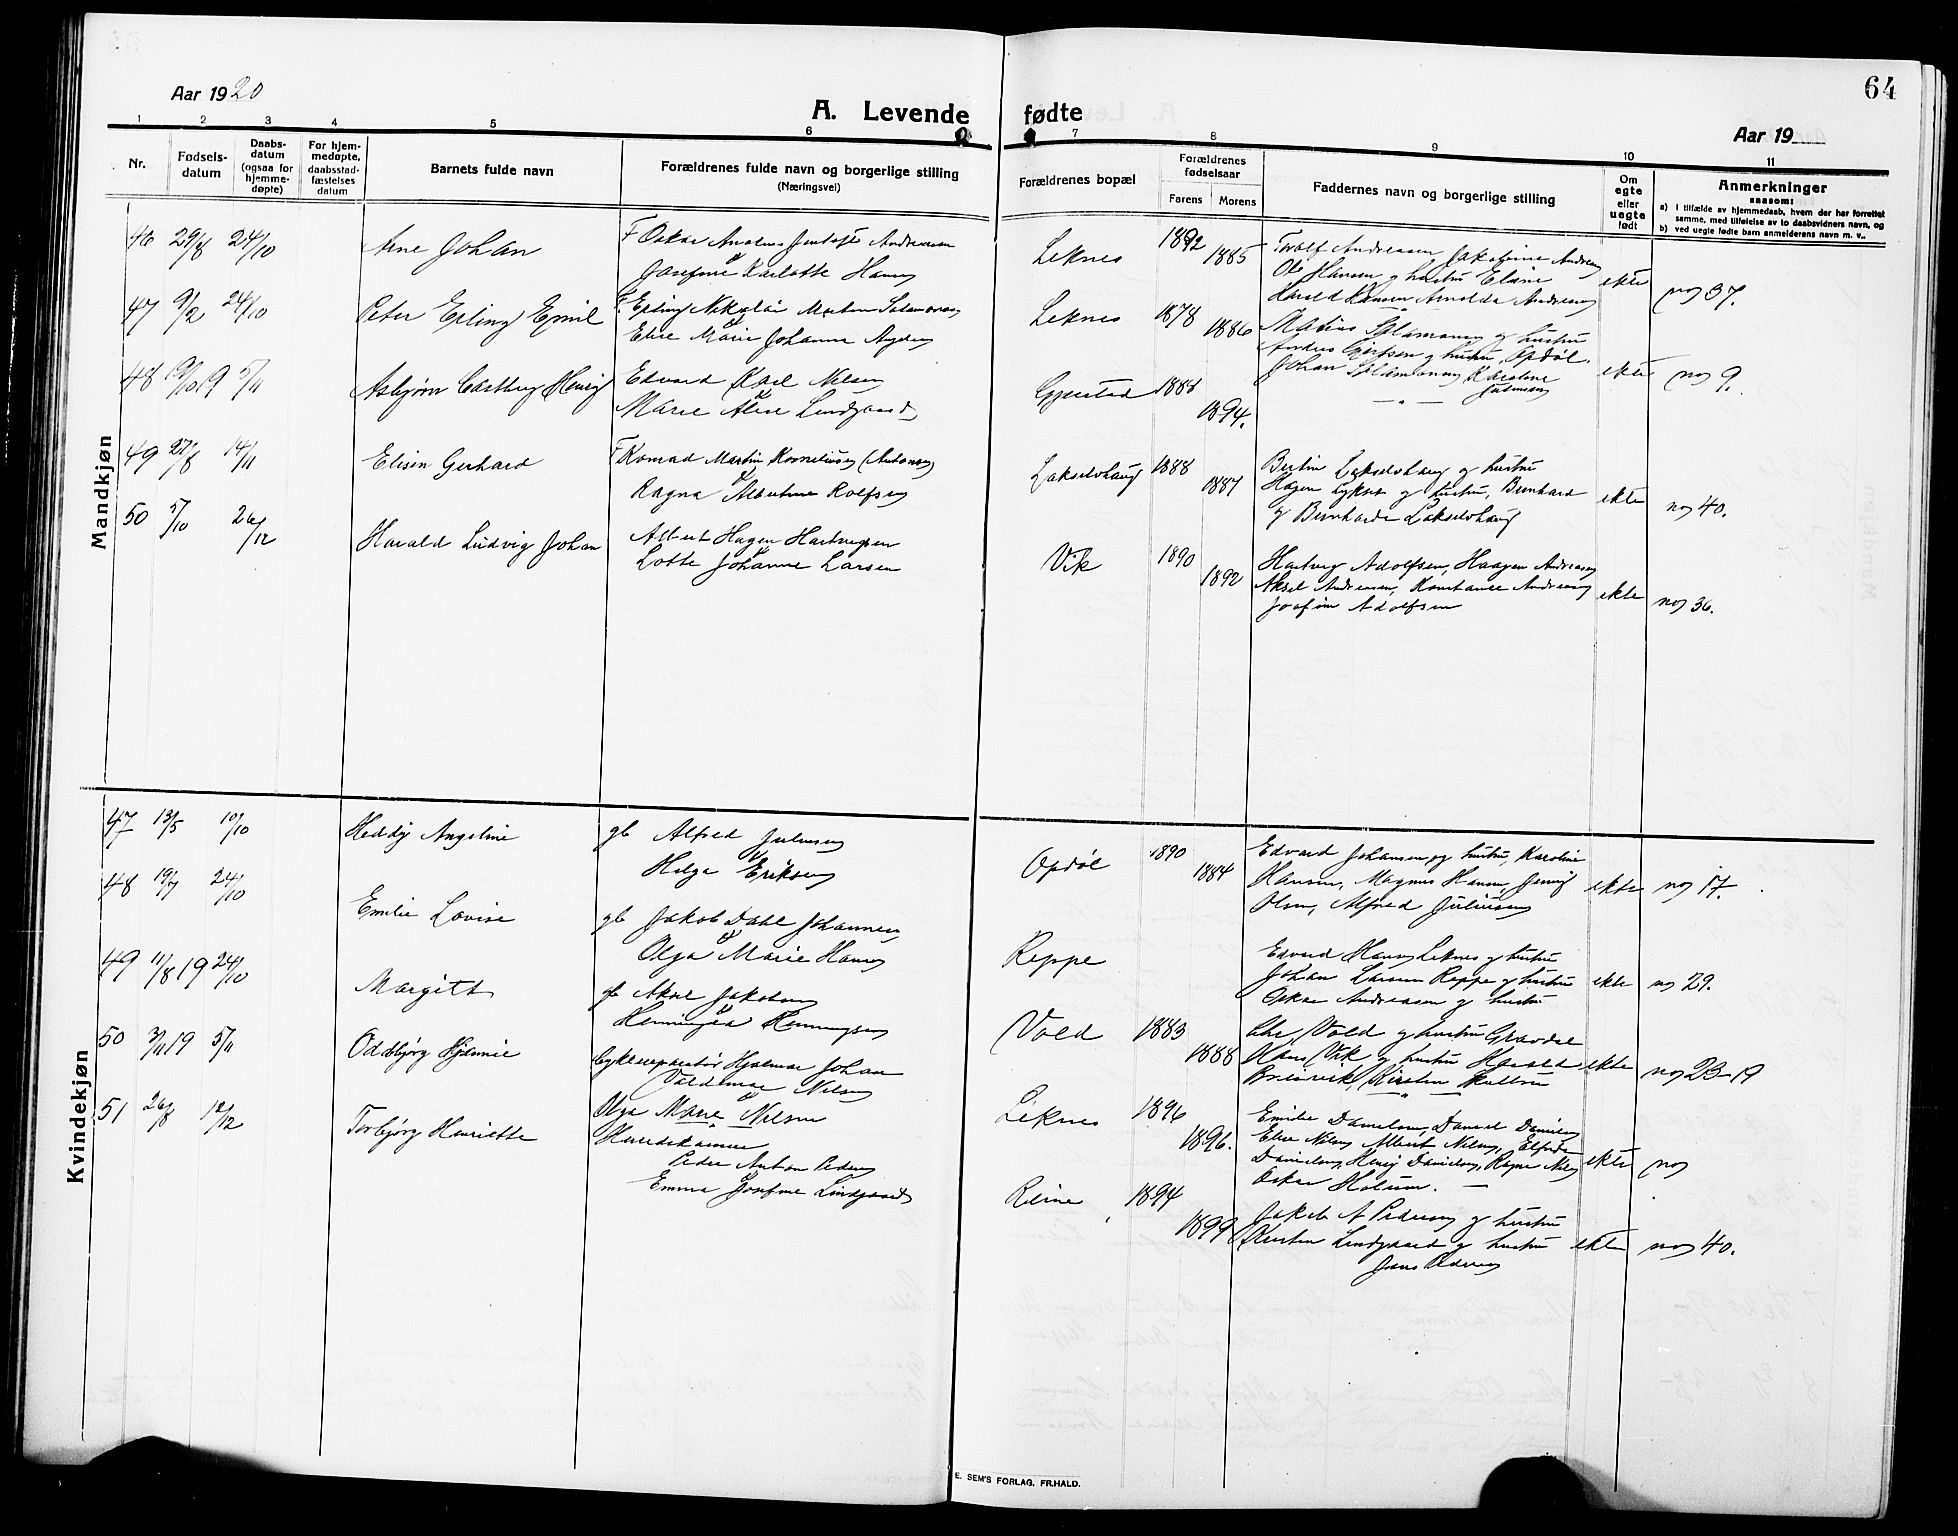 64
Aar 1920
A. Levende fødte
Aar 19
1 2 3 4 5 6 7 8 9 10 11
Nr.
Fødsels-
datum
Daabs-
datum
(ogsaa for
hjemme-
døpte)
For hjem-
medøpte,
daabsstad-
fæstelses
datum
Barnets fulde navn
Forældrenes fulde navn og borgerlige stilling
(Næringsvei)
Forældrenes bopæl
Forældrenes
fødselsaar
Farens Morens
Faddernes navn og borgerlige stilling
Om
egte
eller
uegte
født
Anmerkninger
saasom:
a) I tilfælde av hjemmedaab, hvem der har forrettet
samme, med tilføielse av to daabsvidners navn, og
b) ved uegte fødte barn anmelderens navn m. v.
Mandkjøn
46 29/8 24/10 Arne Johan
F Oskar Andreassen
Josefine Karlotte Hansen
Leknes 1892 1885
Torolf Andreassen Jakobine Andreassen
Ole Hansen og hustru
Harald Hansen Arnolda Andreassen
ekte no 37.
47 9/2 24/10 Peter Erling Emil
F. Erling Nikolai Salamonsen
Elise Marie Johanne
Leknes 1878 1886
Salamonsen og hustru
og hustru, Opdøl.
Johan Salamonsen Karoline
ekte no 9.
48 19/10 19 5/11 Asbjørn Castberg Henry
Edvard Karl Nilsen
Marie Aline Lindgaard
Gjerstad 1888 1894.
— " —
49 27/8 14/11 Elisen Gerhard
F Konrad Martin Korneliussen (Antonsen)
Ragna Albertine Rolfsen
Lakselvhaug 1888 1887
Bertin Lakselvhaug og hustru
Hagen og hustru, Bernhard
og Bernharda Lakselvhaug
ekte no 40.
50 5/10 26/12 Harald Ludvig Johan
Albert Hagen Hartvigsen
Lotte Johanne Larsen
Vik 1890 1892
Hartvig Adolfsen, Haagen Andreassen
Aksel Andreassen, Konstance Andreassen
Josefine Adolfsen
ekte no 36.
Kvindekjøn
47 13/5 10/10 Heddy Angeline
gb Alfred Juliussen
Helga Eriksen
Opdøl 1890 1884
Edvard Johansen og hustru, Karoline
Hansen, Magnus Hansen, Jenny
Olsen, Alfred Juliussen
ekte no 17.
48 19/7 24/10 Emilie Lovise
gb Jakob Dahl Johannesen
Olga Marie Hansen
Reppe
Edvard Hansen Leknes og hustru
Johan Larsen Reppe og hustru
Oskar Andreassen og hustru
ekte no 29.
49 11/8 19 24/10 Margitt
gb Aksel Jakobsen
Henningsen
Vold 1883 1888
Chr. Vold og hustru Gravdal
Hans Vik og hustru Harald
Breivik, Kirsten
ekte no 23-19
50 3/11 19 5/11 Oddbjørg Hjørnie
Cykkelreparatør Hjalmar Johan
Valdemar Nilsen
Olga Marie Nilsen
Leknes 1896 1896.
Emilie Danielsen, Daniel Danielsen
Elise Nilsen Albert Nilsen, Elfrida
Danielsen, Henry Danielsen, Ragna Nilsen
Oskar Holum. —
ekte no
51 26/8 12/12 Torbjørg Henriette
Peder Anton Pedersen
Emma Josefine Lindgaard
Reine 1894 1899
Jakob A Pedersen og hustru
Lindgaard og hustru
Jens Pedersen
ekte no 40.
E. SEM'S FORLAG, FR.HALD.